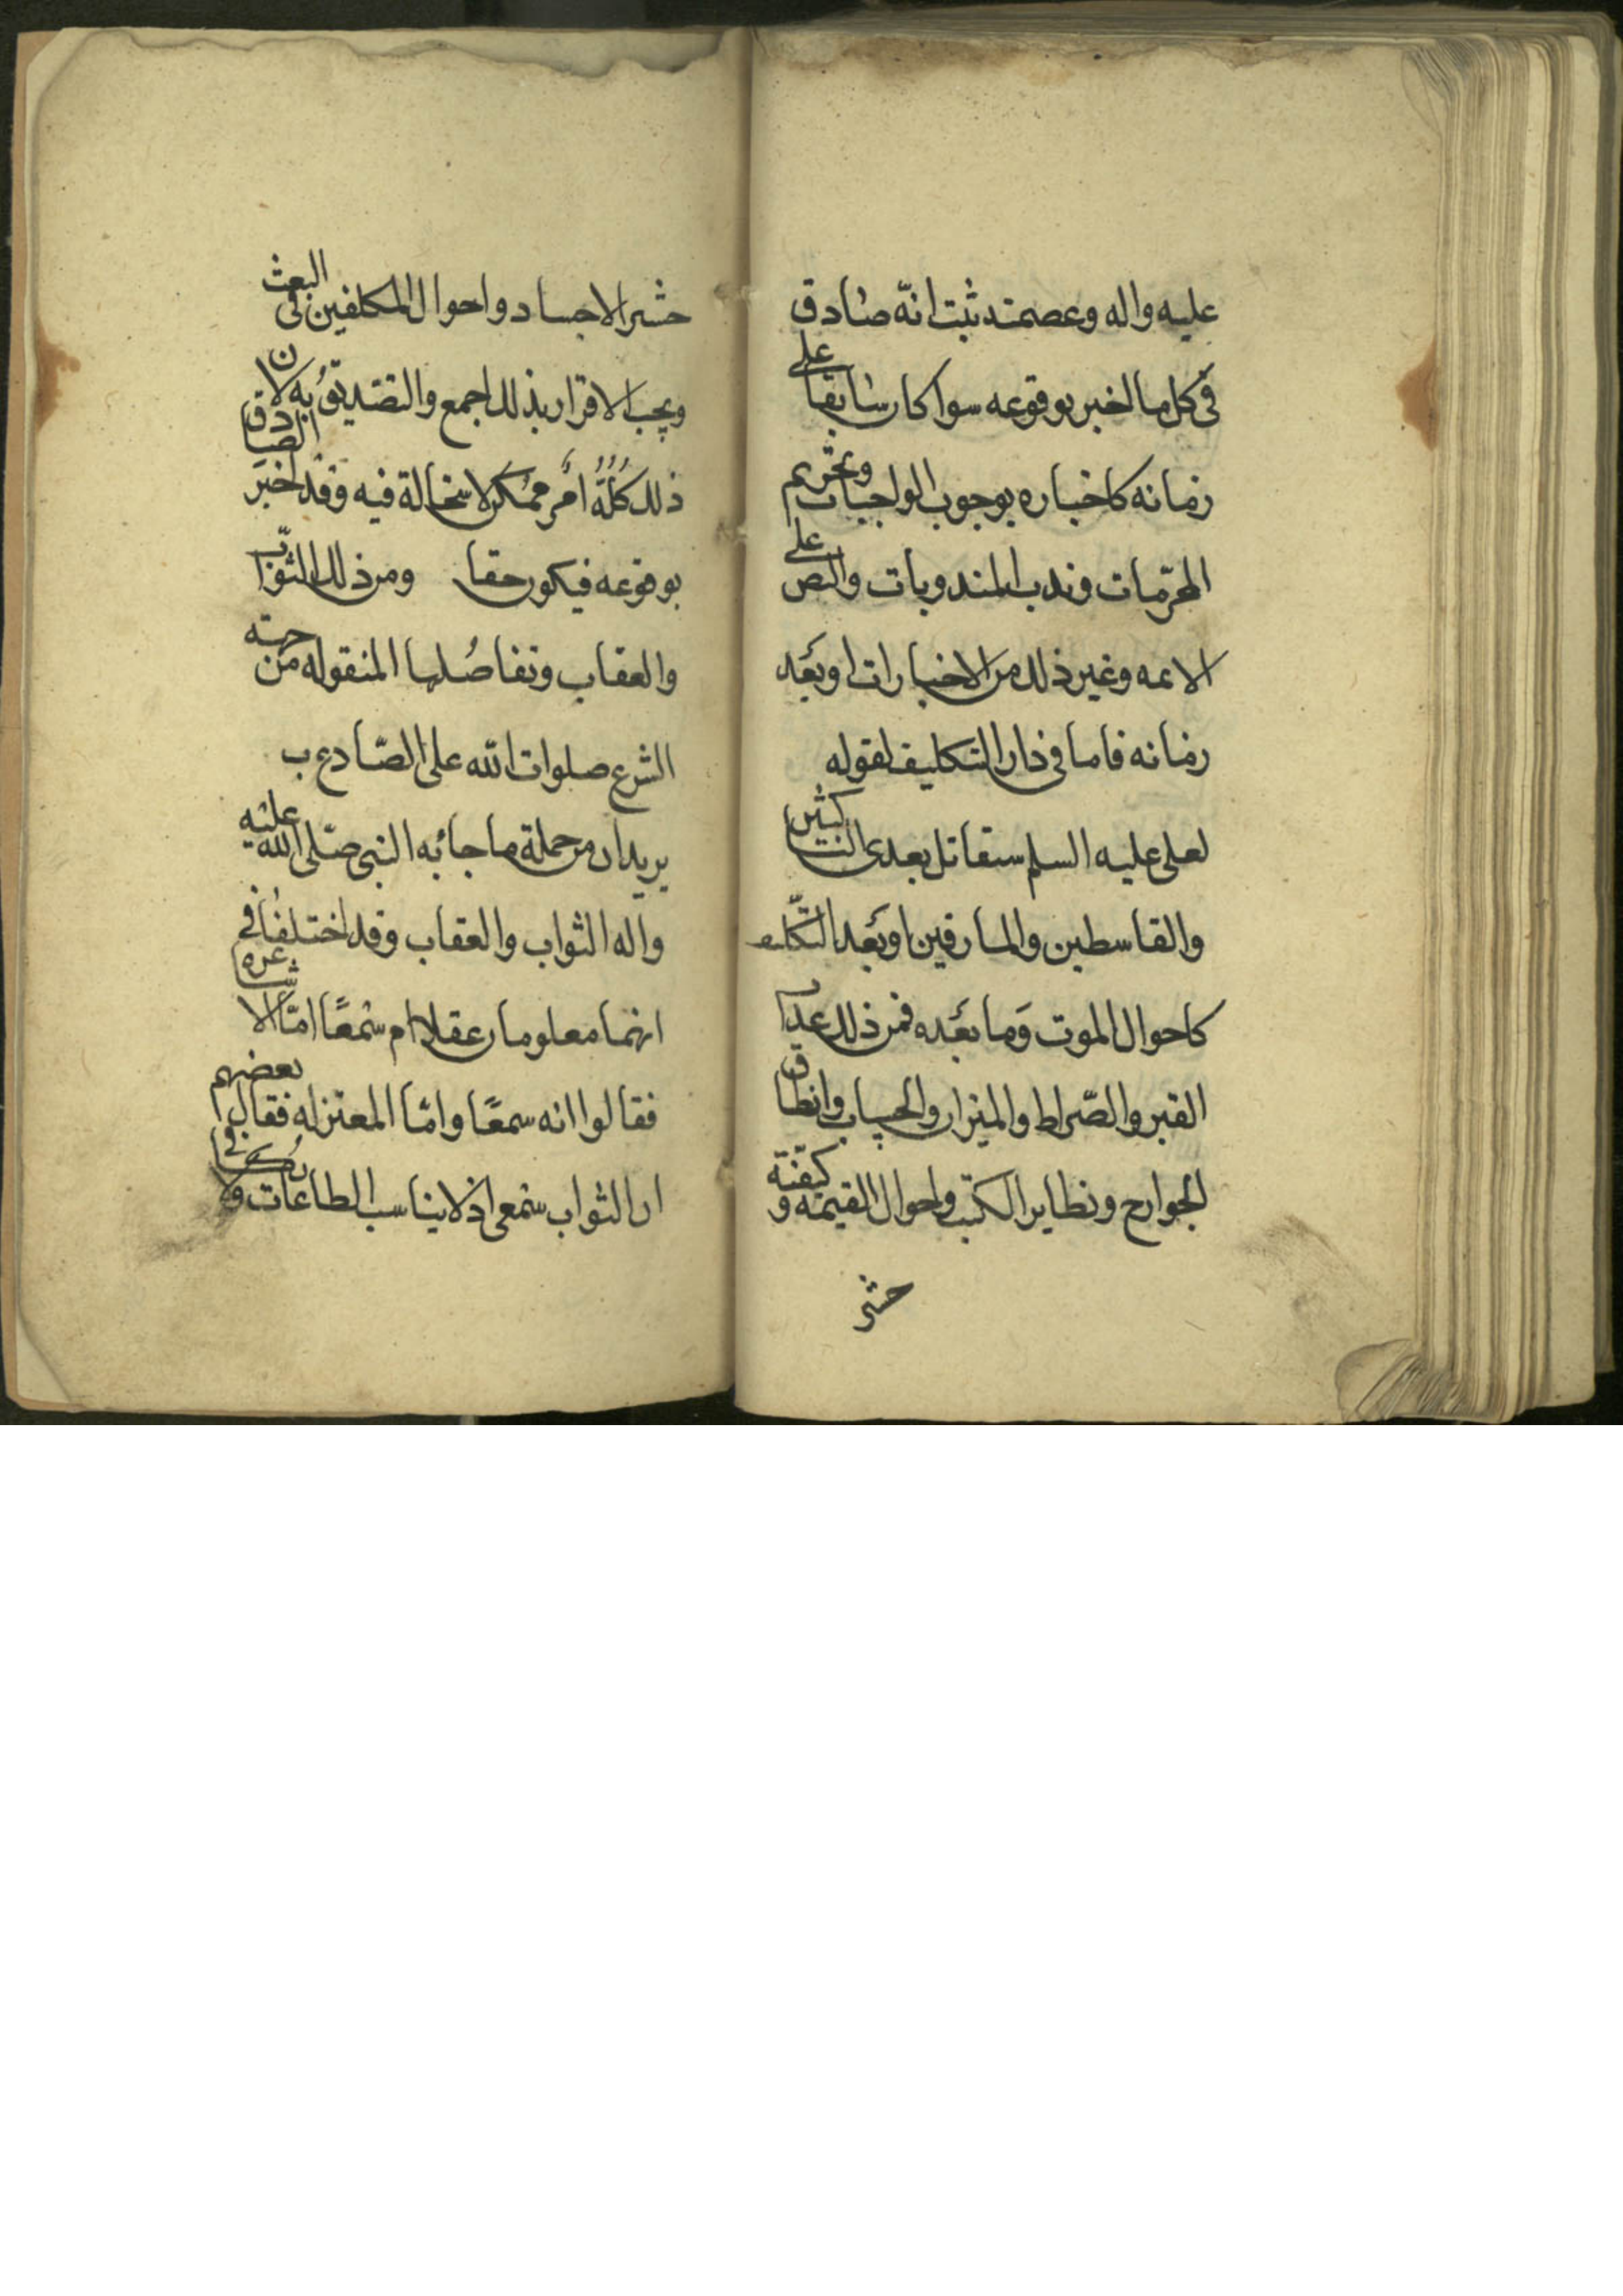 عليه واله وعصمته ثبت انّه صادق
فى كل ما اخبر بوقوعه سوا كان سابقا على
زمانه كاخباره بوجوب الواجبات وتحريم
المحرّمات وندب المندوبات والنص على
الائمه وغير ذلك من الاخبارات او بعد
زمانه فاما فى دار التكليف لقوله
لعلى عليه السلم ستقاتل بعدى الناكثين
والقاسطين والمارقين او بعد التكليف
كاحوال الموت وما بعده فمن ذلك عذاب
القبر والصّراط والميزان والحساب وانطاق
الجوارح وتطاير الكتب واحوال القيمة و كيفية
حشر
حشر الاجساد واحوال المكلفين فى البعث
ويجب الاقرار بذلك اجمع والتصديق به لان
ذلك كلّه امر ممكن لا استحالة فيه وقد اخبر الصادق
بوقوعه فيكون حقا ومن ذلك الثواب
والعقاب وتفاصيلها المنقوله من جهته
الشرع صلوات الله على الصّادع ب
يريد ان من جملة ما جاء به النبى صلى الله عليه
واله الثواب والعقاب وقد اختلف فى
انهما معلومان عقلا ام سمعًا امّا الاشاعره
فقالوا انه سمعًا وامّا المعتزله فقال بعضهم
ان الثواب سمعى اذ لا يناسب الطاعات ولا